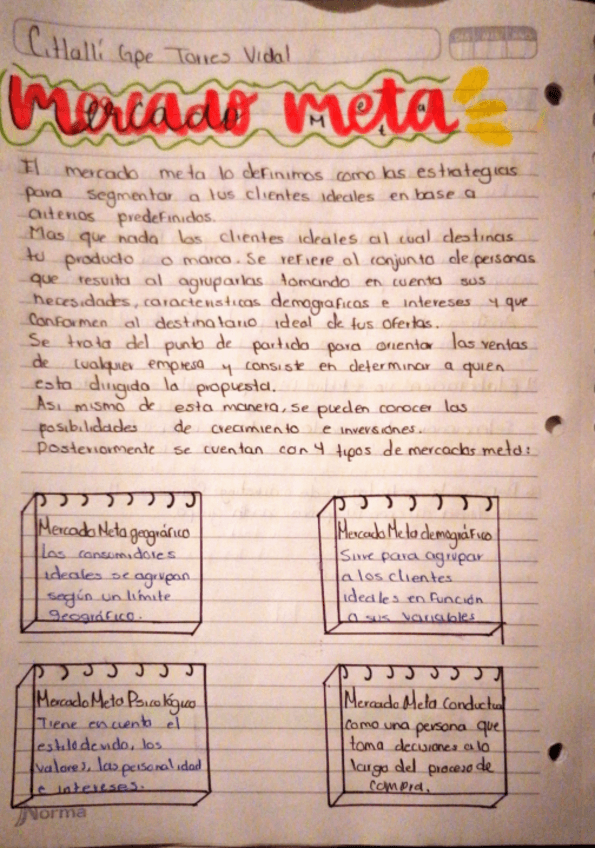 Citlallí Gpe Torres Vidal
DIA MES AÑO
Mercado Meta
El mercado meta lo definimos como las estrategias
para segmentar a tus clientes ideales en base a
criterios predefinidos.
Mas que nada los clientes ideales al cual destinas
tu producto o marca. Se refiere al conjunto de personas
que resulta al agruparlas tomando en cuenta sus
necesidades, caracteristicas demograficas e intereses y que
conformen al destinatario ideal de tus ofertas.
Se trata del punto de partida para orientar las ventas
de cualquier empresa y consiste en determinar a quien
esta dirigida la propuesta.
Asi mismo de esta manera, se pueden conocer las
posibilidades de crecimiento e inversiones.
Posteriormente se cuentan con 4 tipos de mercados meta:
Mercado Meta geográfico
Los consumidores
ideales se agrupan
según un límite
geográfico.
Mercado Meta demográfico
Sirve para agrupar
a los clientes
ideales en función
a sus variables
Mercado Meta Psicológico
Tiene en cuenta el
estilo de vida, los
valores, las personalidad
e intereses.
Mercado Meta Conductua
como una persona que
toma decisiones a lo
largo del proceso de
compra.
Norma